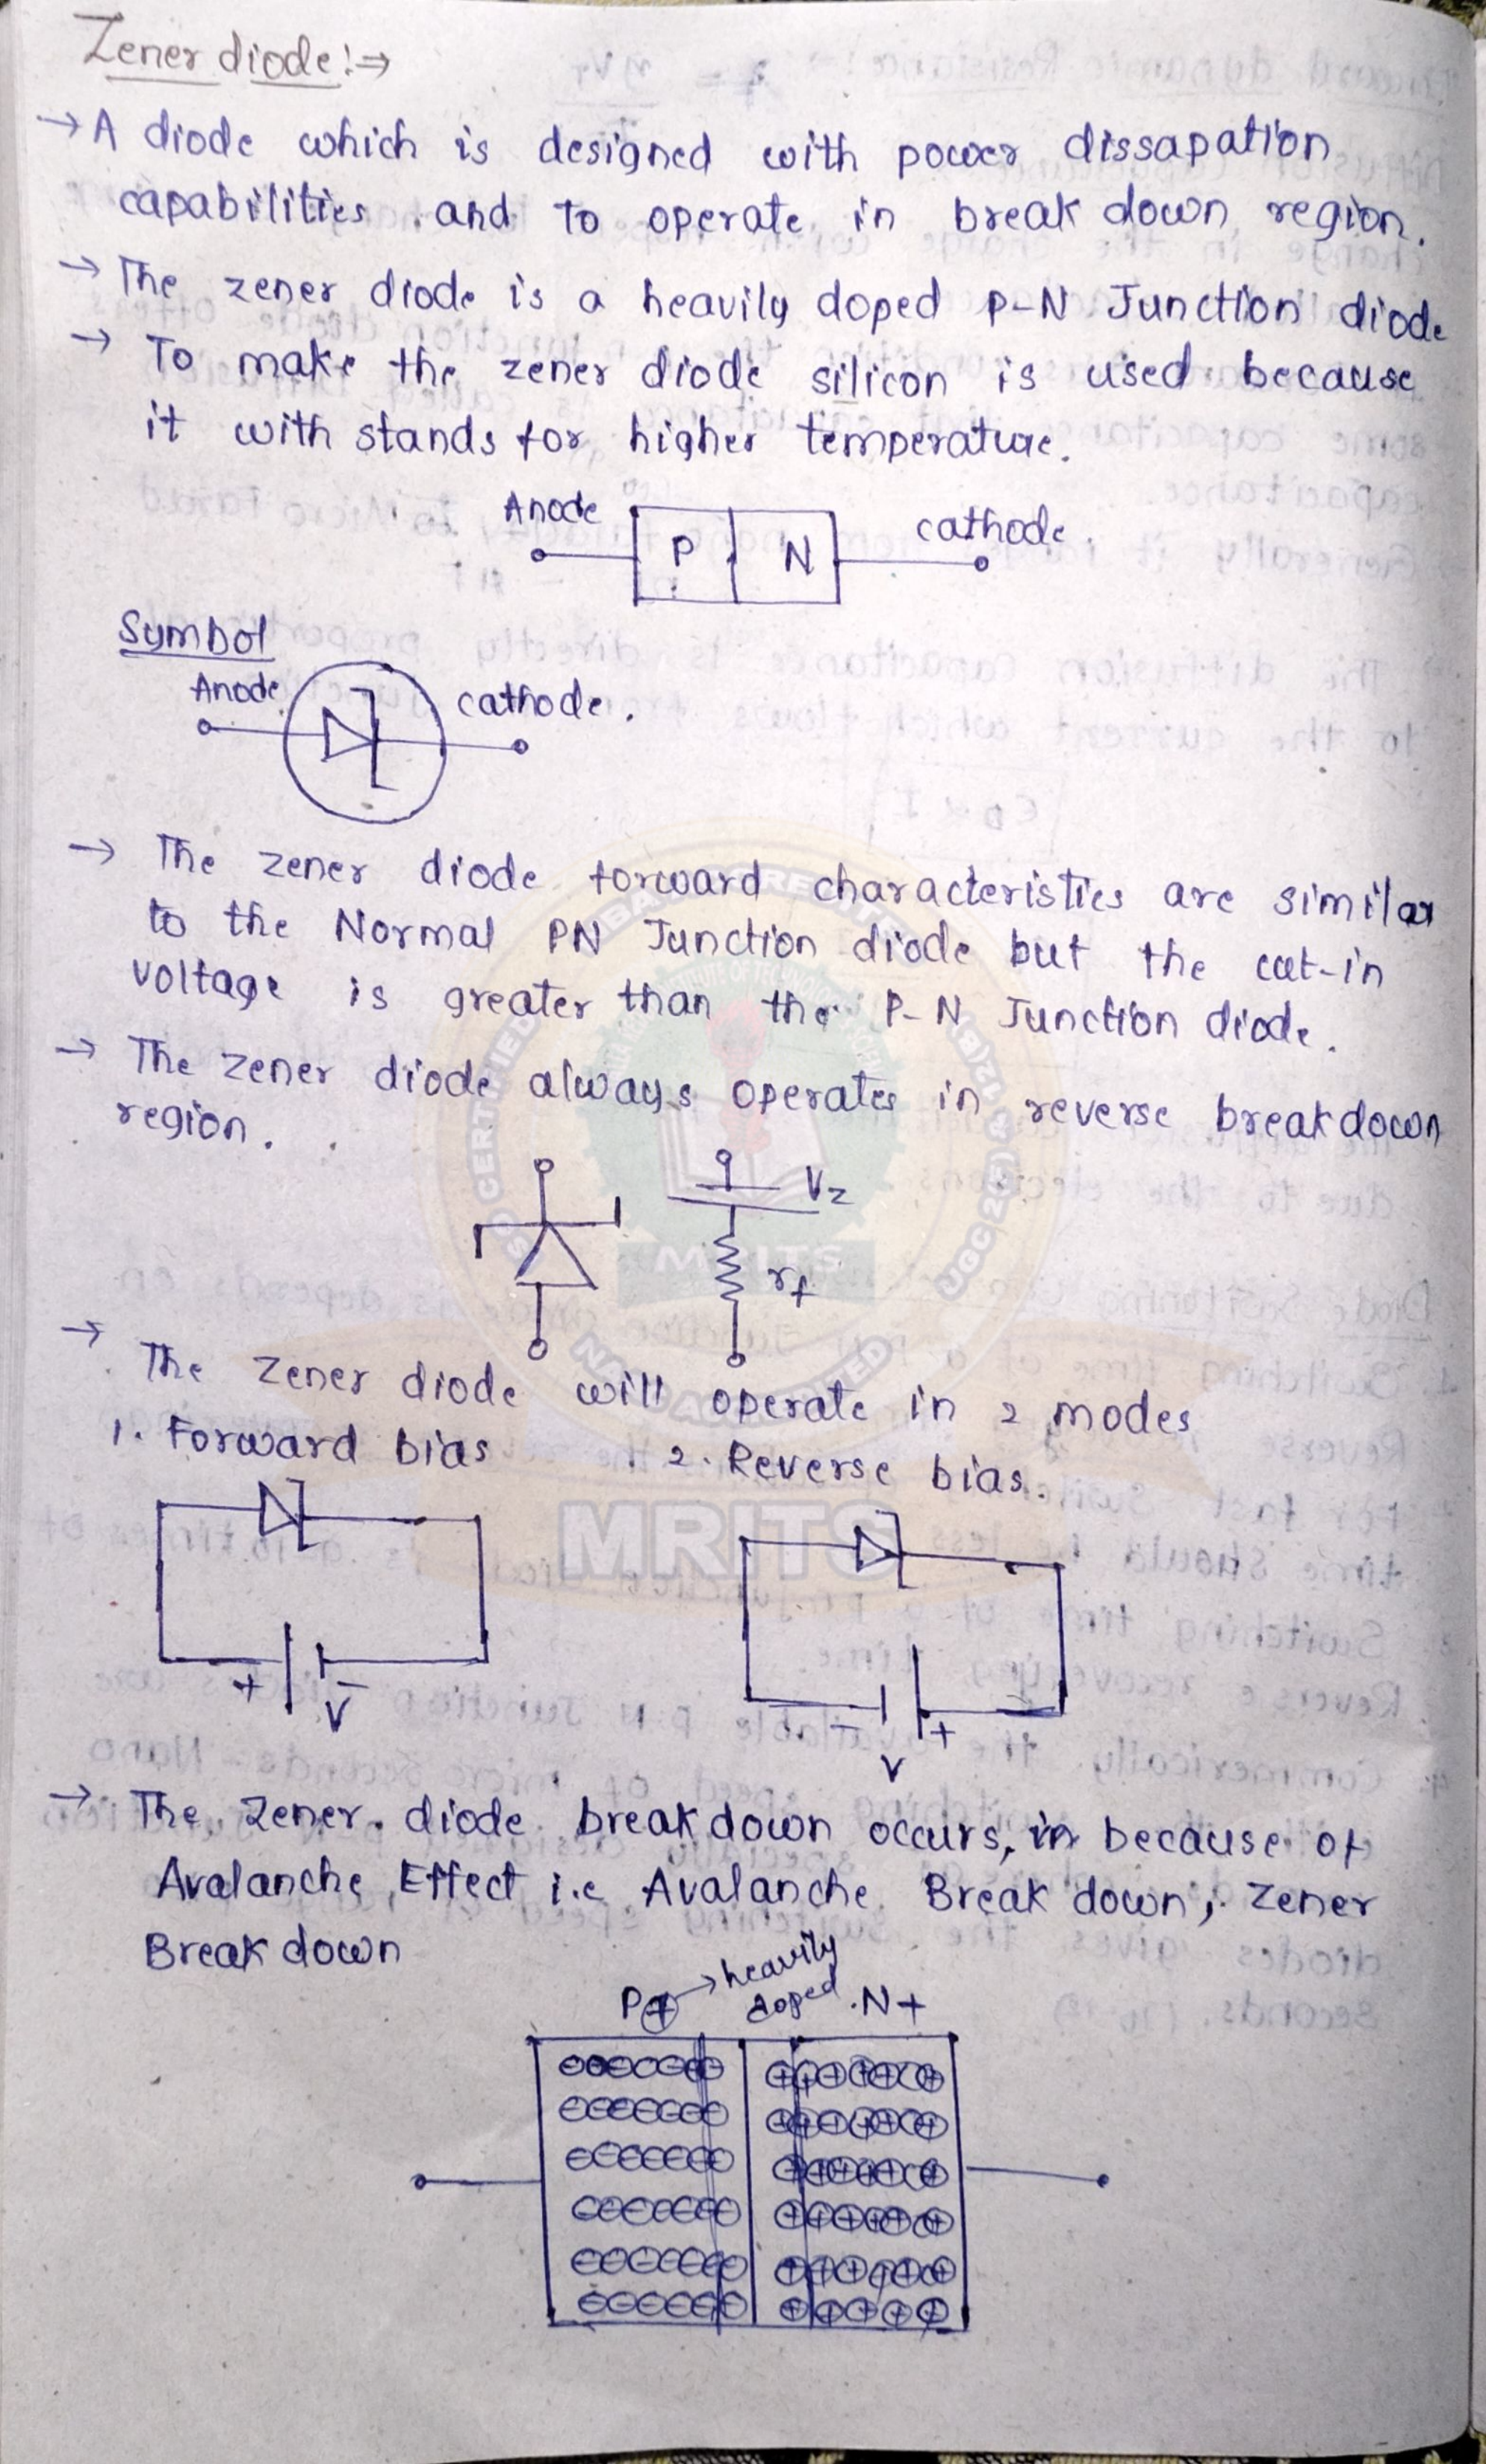 Zener diode:⇒
→ A diode which is designed with power dissapation
capabilities and to operate in break down region.
→ The zener diode is a heavily doped P-N Junction diode
→ To make the zener diode silicon is used because
it with stands for higher temperature.
Anode P N cathode.
Symbol
Anode cathode.
→ The zener diode forward characteristics are similar
to the Normal PN Junction diode but the cut-in
voltage is greater than the P-N Junction diode.
→ The zener diode always operates in reverse breakdown
region.
Vz
rf
→ The Zener diode will operate in 2 modes
1. Forward bias 2. Reverse bias.
MRITS
+ V -
- V +
→ The Zener diode break down occurs, in because of
Avalanche Effect i.e Avalanche Break down, Zener
Break down
P+ → heavily doped N+